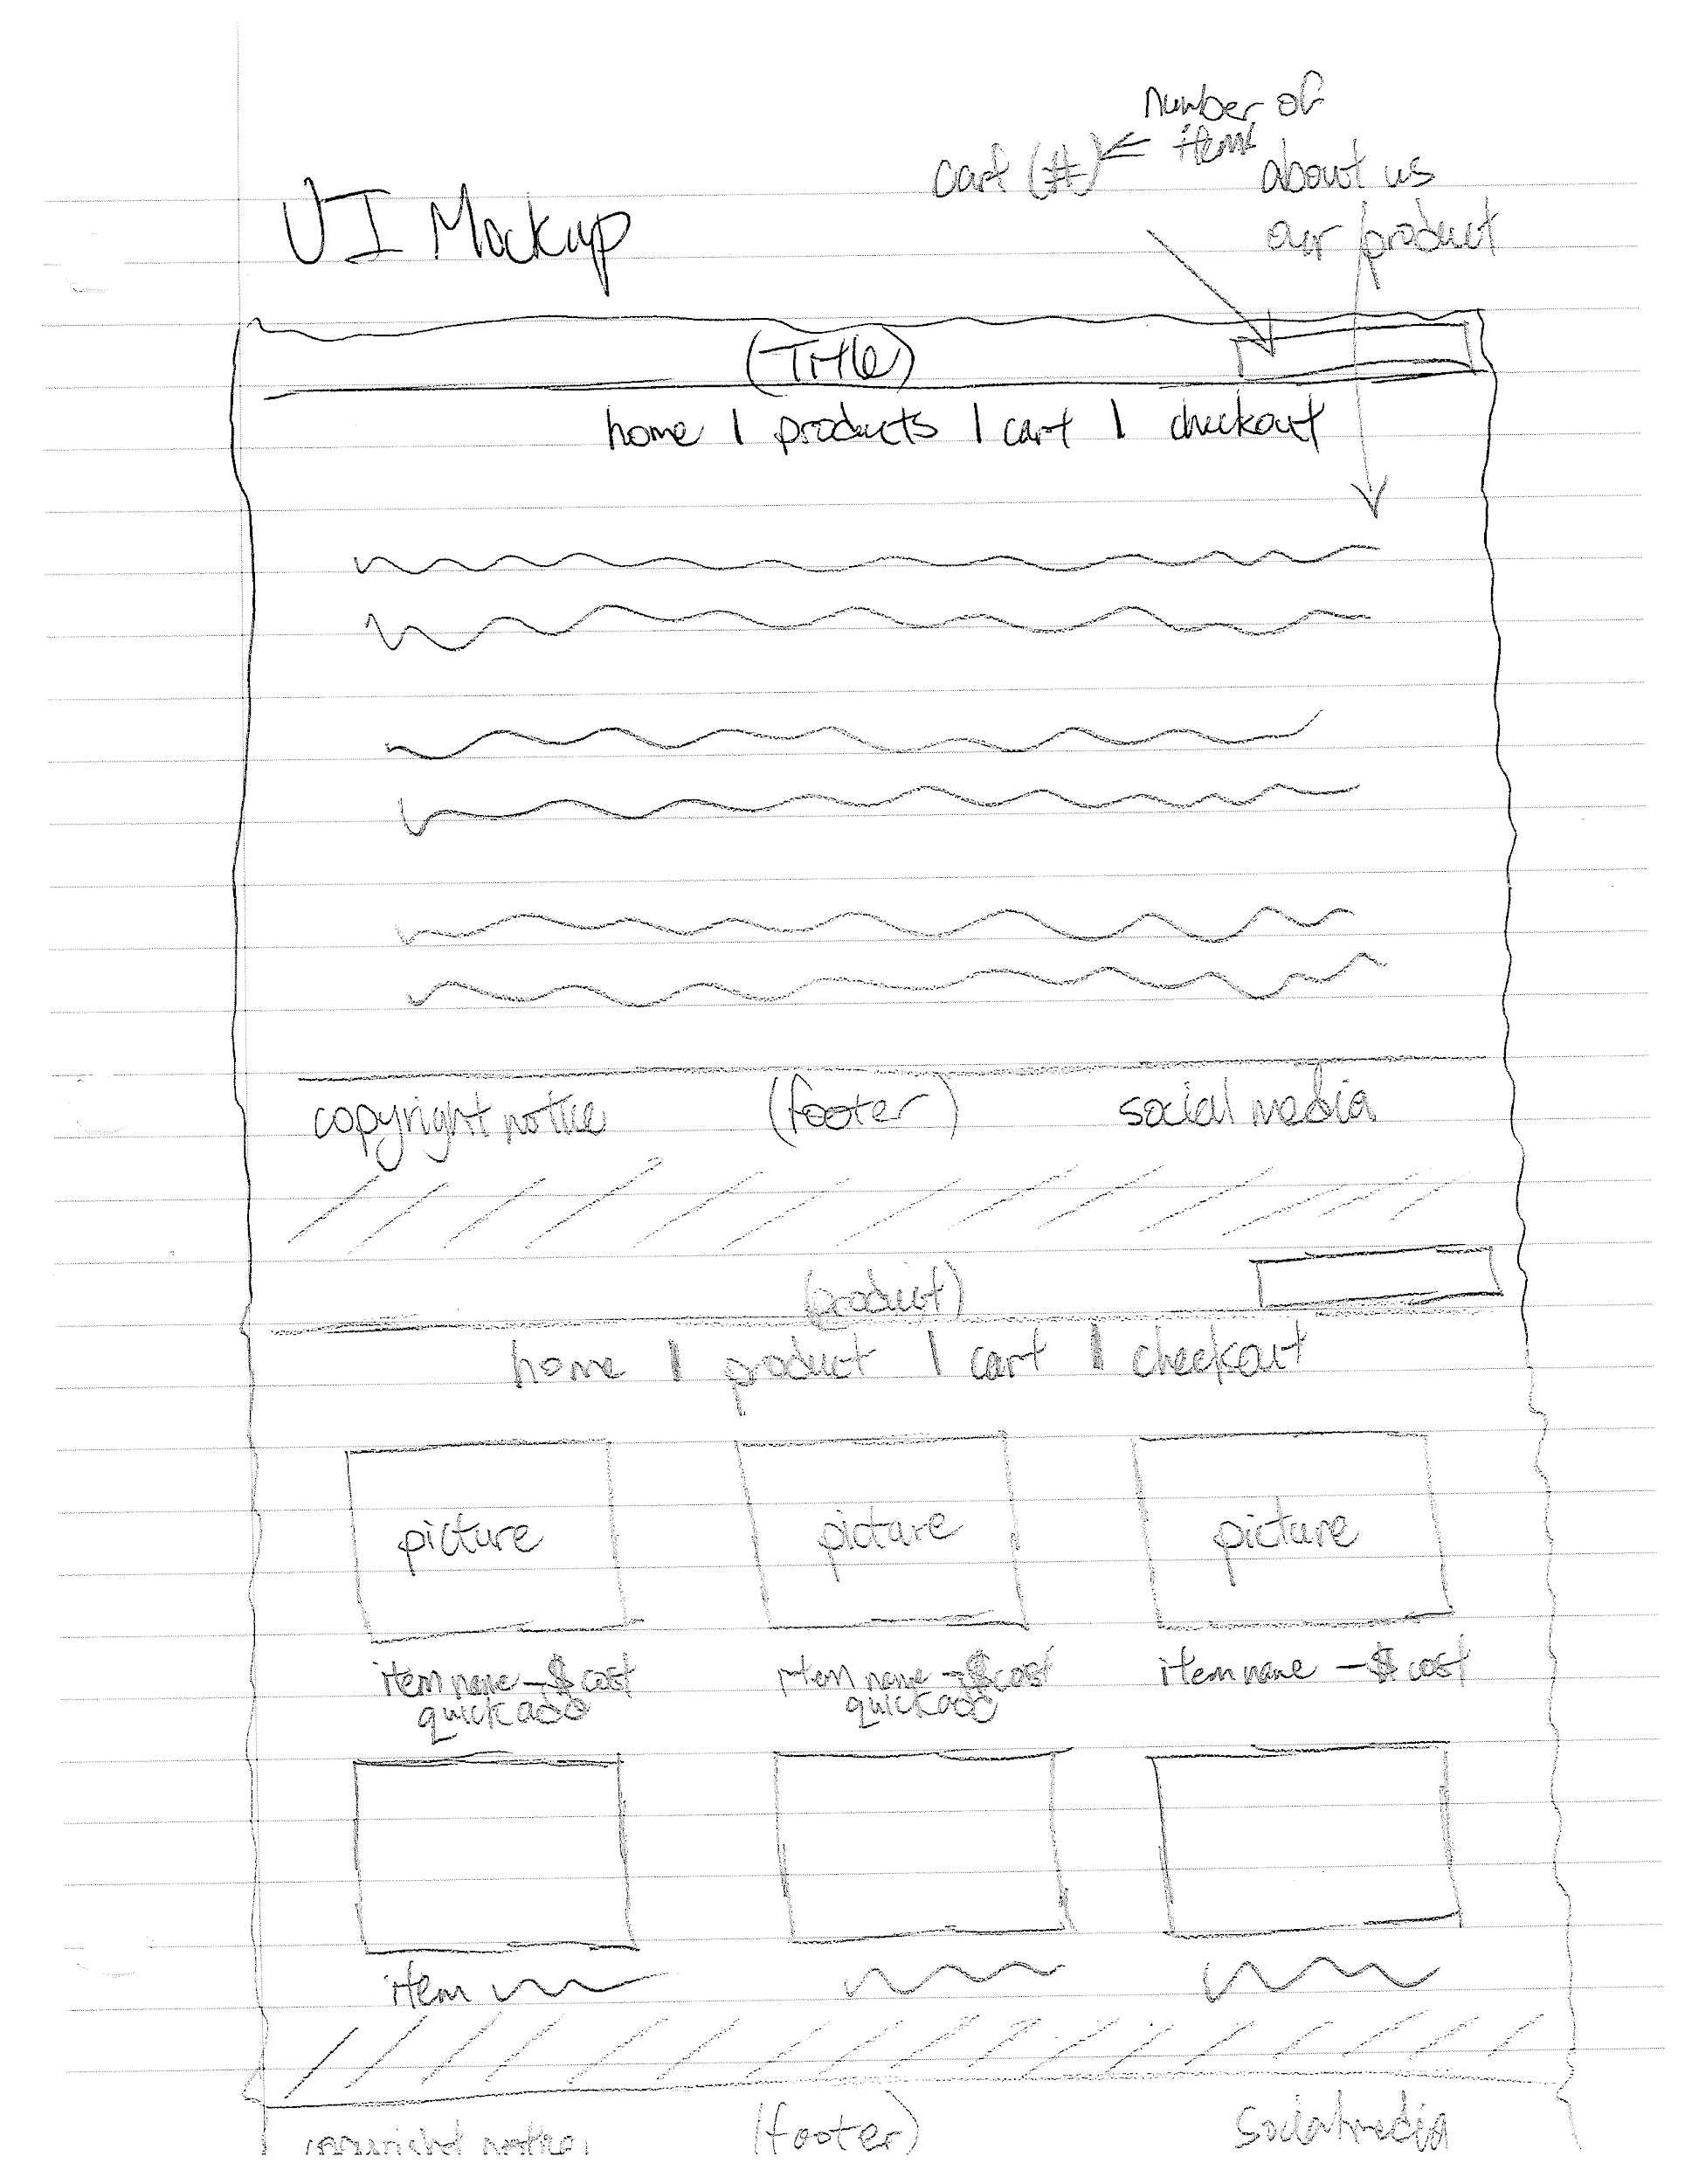 number of
cart (#) ← items
about us
our product
UI Mockup
(Title)
home | products | cart | checkout
copyright notice (footer) social media
(product)
home | product | cart | checkout
picture picture picture
item name - $ cost item name - $ cost item name - $ cost
quick add quick add
item
copyright notice (footer) social media